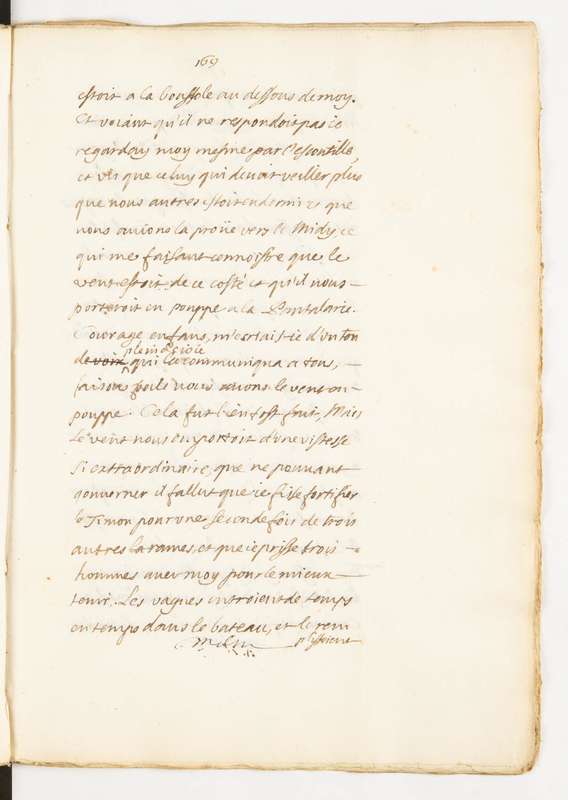 169
estoit a la boussole au dessous de moy.
Et voiant qu'il ne respondoit pas ie
regarday moy mesme par l'escoutille,
et vis que celuy qui devoit veiller plus
que nous autres estoit endormi et que
nous avions la proüe vers le Midy ce
qui me faisant connoistre que le
vent estoit de ce costé et qu'il nous
portoit en pouppe a la
Courage enfans, m'escriai-ie d'un ton
plein de joie
de voix qui se communiqua a tous,
faisons voile nous avons le vent en
pouppe. Cela fut bien tost fait, Mais
Le vent nous emportoit d'une vistesse
Si extraordinaire, que ne pouvant
gouverner il fallut que ie fisse fortifier
le Timon pour une seconde fois de trois
autres rames, et que ie prisse trois
hommes avec moy pour le mieux
tenir. Les vagues entroient de temps
en temps dans le bateau, et le rem
plissoient